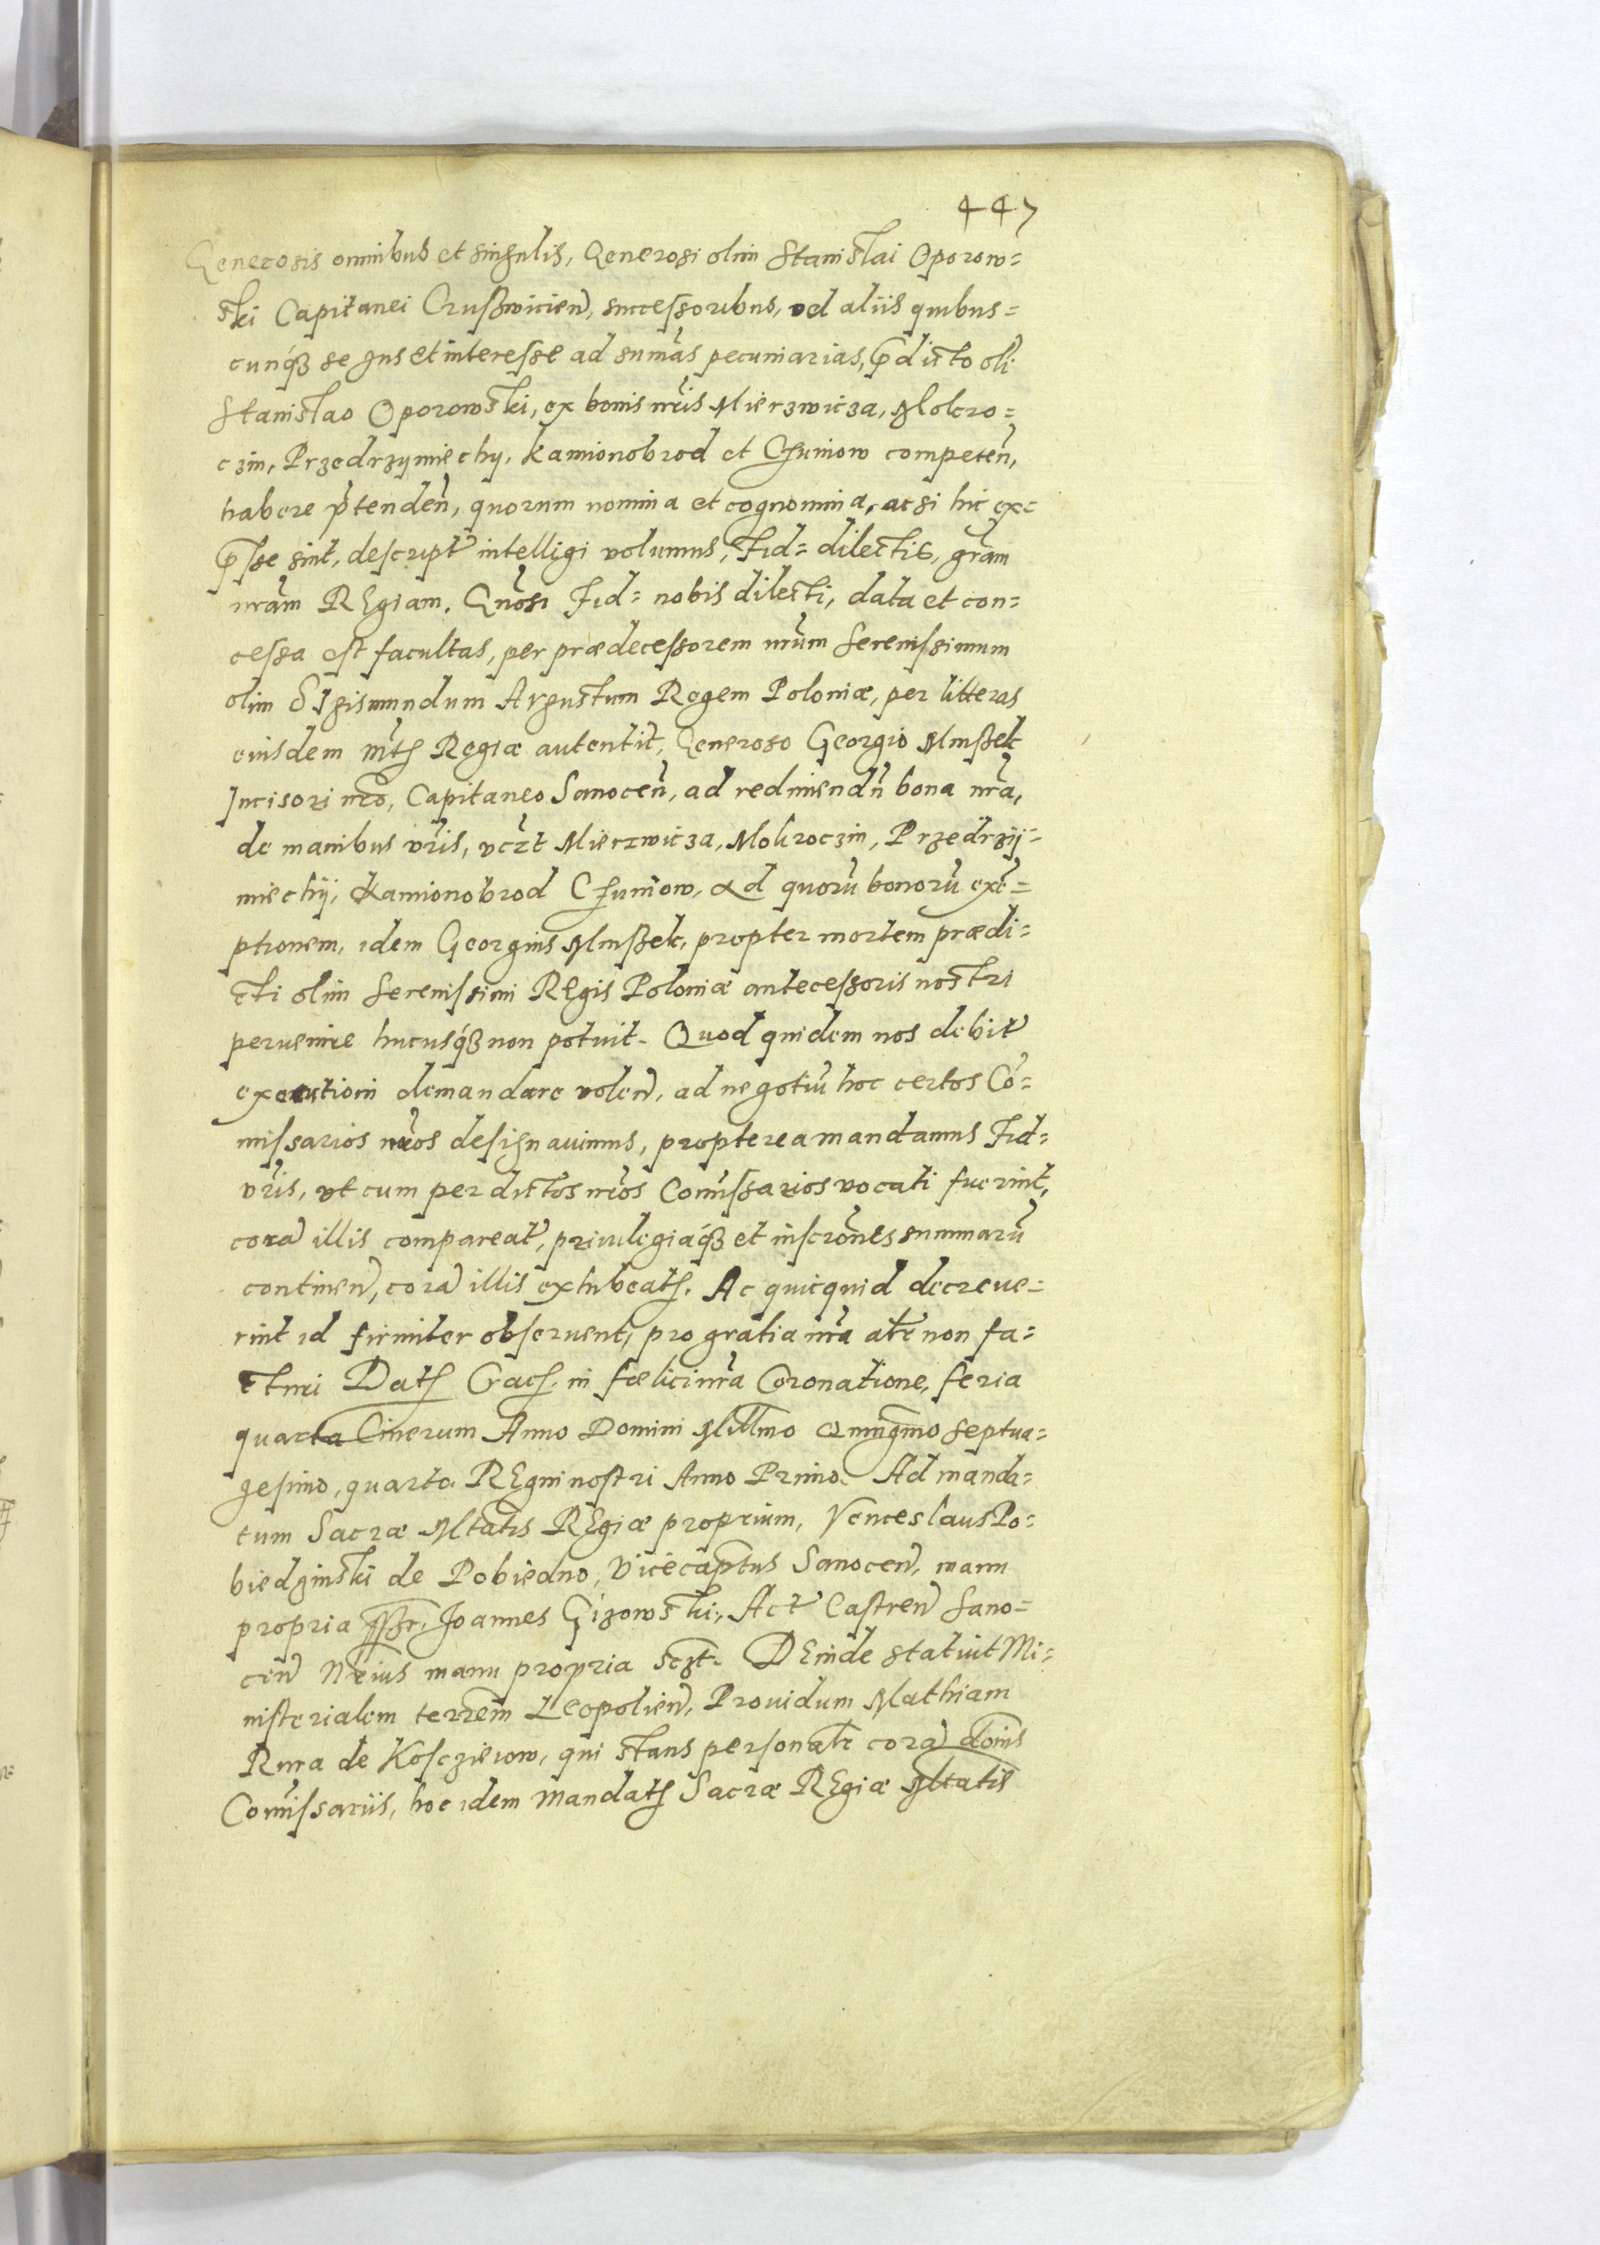 447
Generosis omnibus et singulis, Generosi olim Stanislai Oporow=
ski Capitanei Crusswicień, successoribus, vel aliis quibus=
cunq́ꝫ se Jus et interesse ad sum̃as pecuniarias, p̃dicto oli
Stanislao Oporowski, ex bonis nr̃is Mierzwicza, Mokro=
czin, Przedrzymiechy, Kamionobrod et Csuniow competeñ,
habere p̃tendeñ, quorum nomina et cognomina, ac si hic ex=
p̃sse sint, descript intelligi volumus, Fid= dilectis, gr̃am
nr̃am REgiam. Gnõsi Fid= nobis dilecti, data et con=
cessa est facultas, per prædecessorem nr̃um Serenissimum
olim SIgismundum Augustum Regem Poloniæ, per litteras
eiusdem Mt̃ Regiæ autentic̃, Generoso Georgio Mnissek
Incisori nr̃o, Capitaneo Sanoceñ, ad redimendñ bona nr̃a,
de manibus vr̃is, vcz̃t Mierzwicza, Mokroczin, Przedrzÿ=
miechÿ, Kamionobrod Csuniow, Ad quorũ bonorũ exẽ=
ptionem, idem Georgius Mnissek, propter mortem prædi=
cti olim Serenissimi REgis Poloniæ antecessoris nostri
peruenire hucusq́ꝫ non potuit. Quod quidem nos debit
executioni demandare voleñ, ad negotiũ hoc certos Cõ=
missarios nr̃os designauimus, propterea mandamus Fid=
vr̃is, vt cum per dictos nr̃os Com̃issarios vocati fuerint,
corã illis compareat, priuilegiaq́ꝫ et inscrõnes summarũ
continen, corã illis exhibeat. Ac quicquid decreue=
rint id firmiter obseruent, pro gratia nr̃a alt̃r non fa=
cturi Dat Crac. in fœlici nr̃a Coronatione, feria
quarta Cinerum Anno Domini Mill̃mo Quinĝmo Septua=
gesimo, quarto. REgni nostri Anno Primo. Ad manda=
tum Sacræ Mtatis REgiæ proprium, Venceslaus Po=
biedzinski de Pobiedno, Vicecapt̃us Sanoceñ, manu
propria sszr. Joannes Gizowski, Act Castreñ Sano=
ceñ Nr̃ius manu propria sczt. DEinde statuit Mi=
nisterialem terrem̃ Leopolieñ, Prouidum Mathiam
Rura de Kosczieiow, qui stans personalr̃ corã dom̃is
Com̃issariis, hoc idem mandat Sacræ REgiæ Mtatis